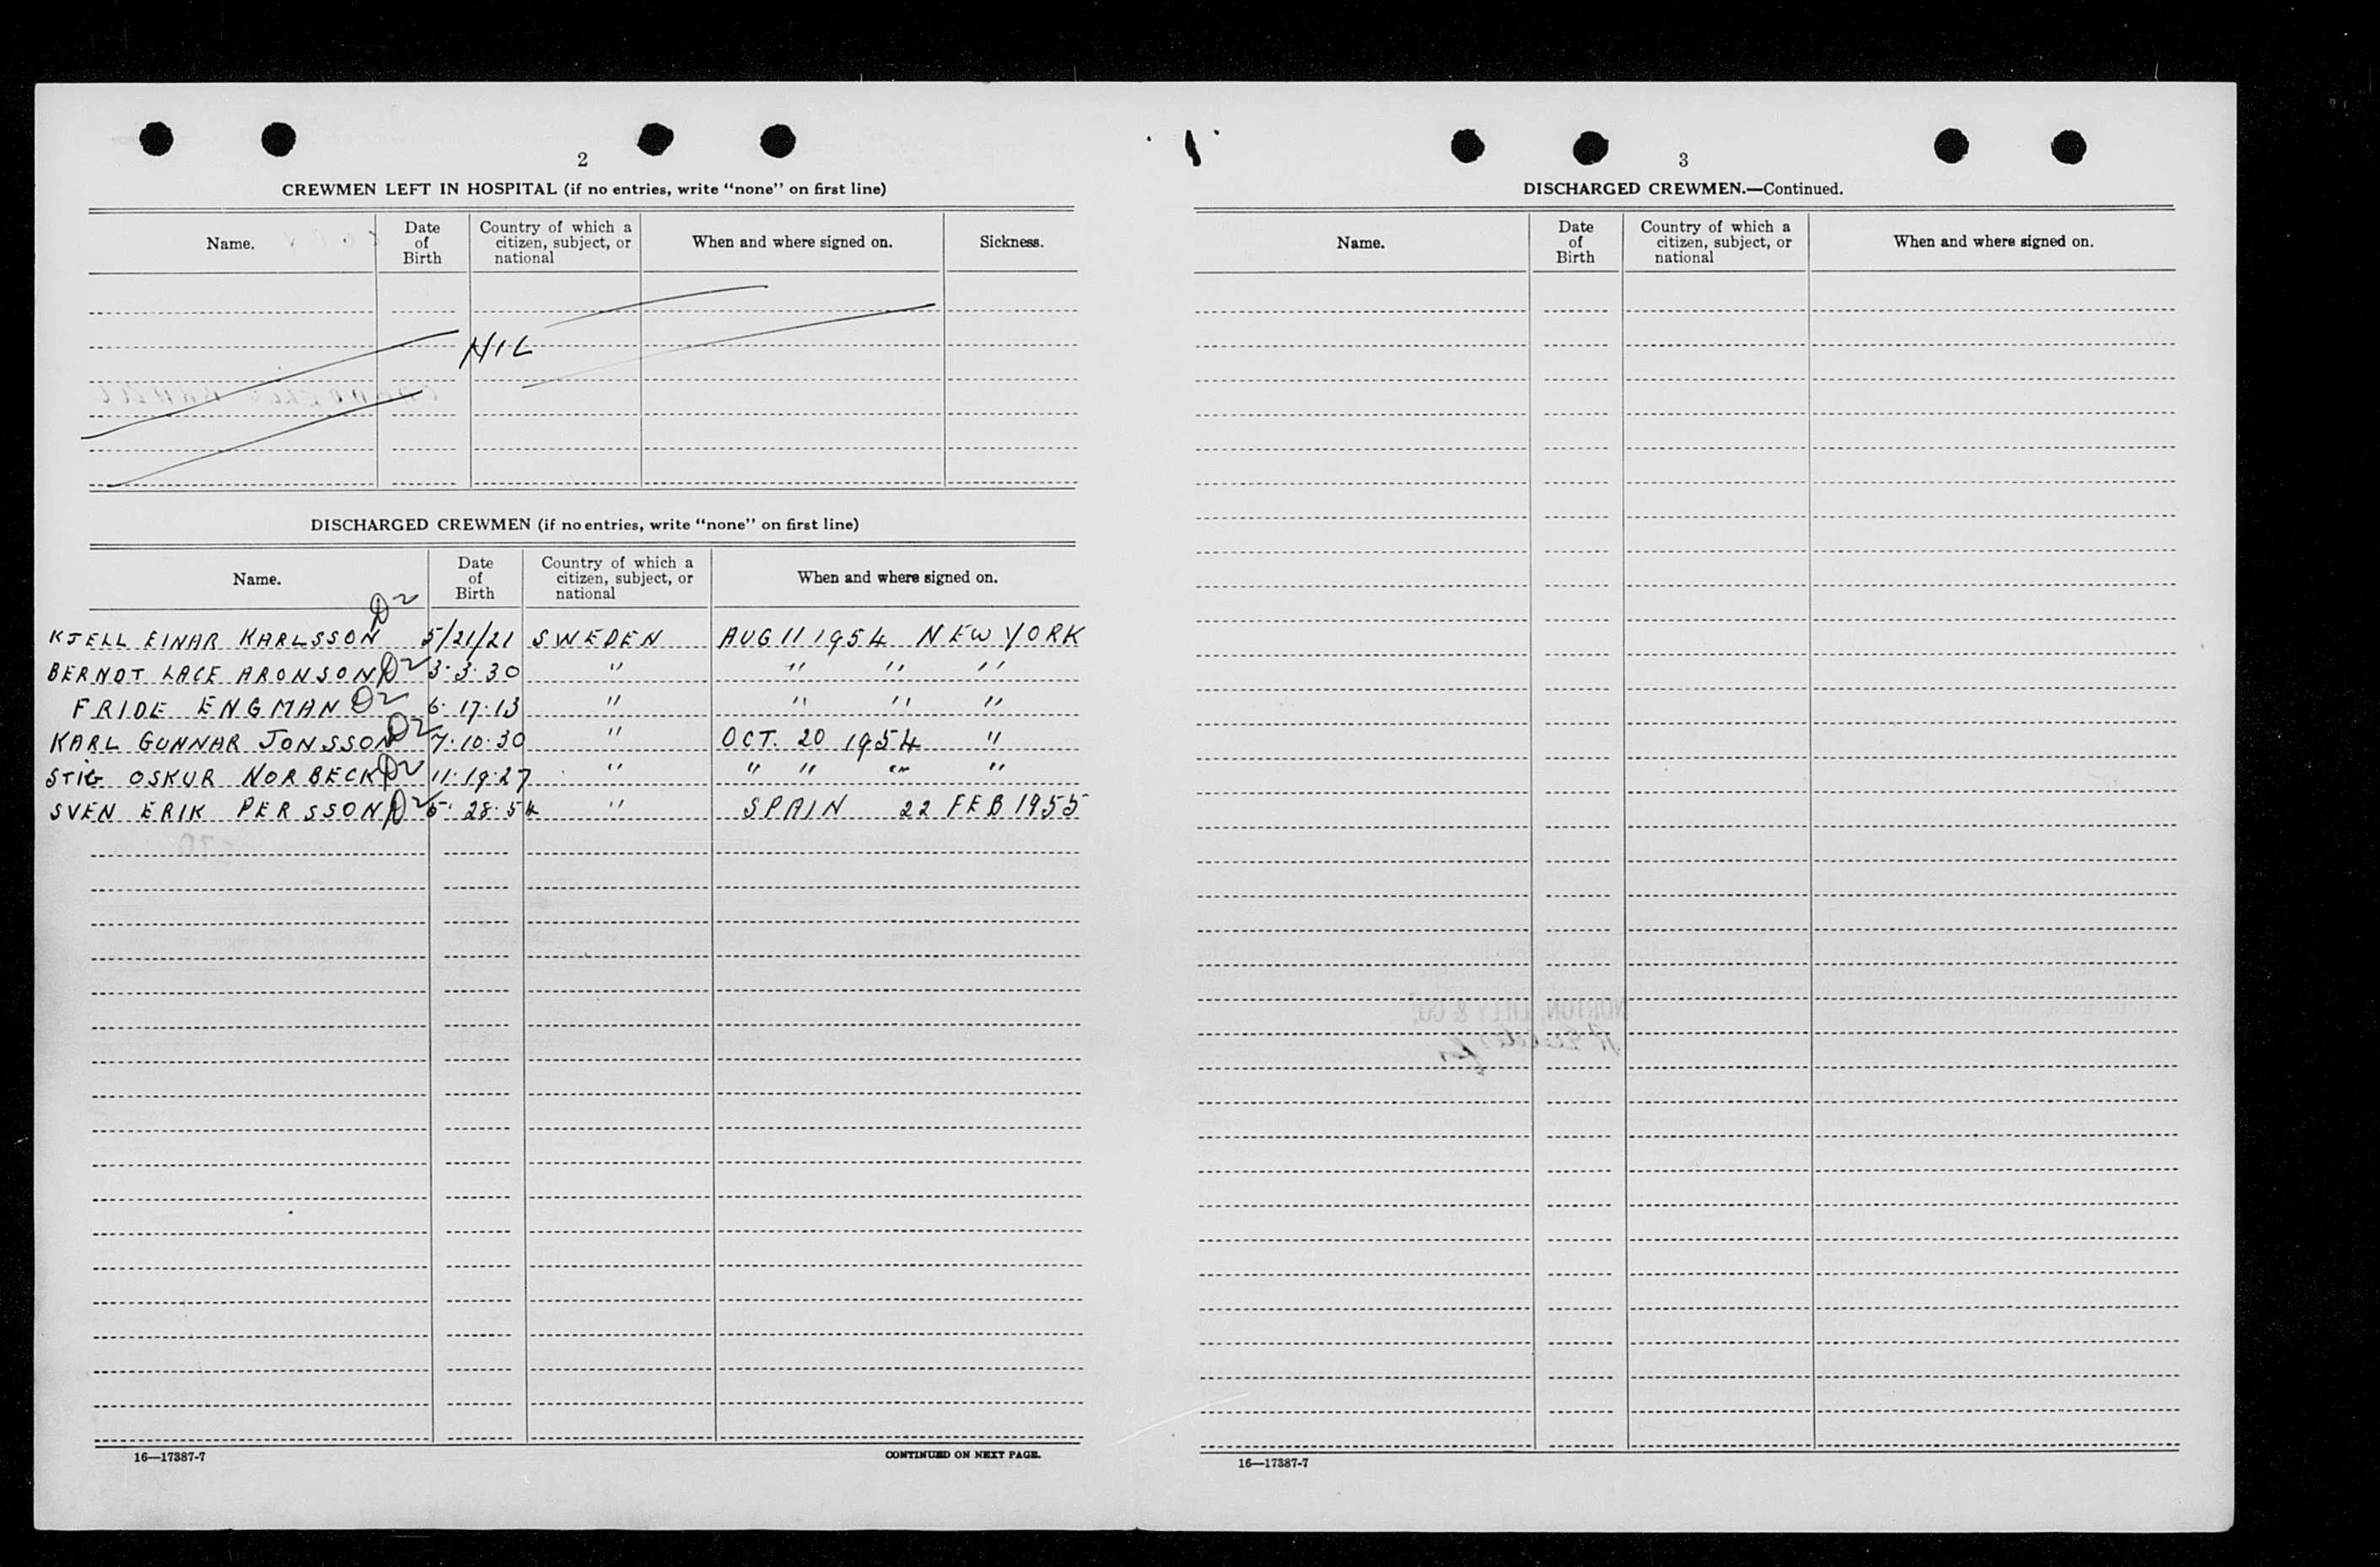 2
CREWMEN LEFT IN HOSPITAL (if no entries, write "none" on first line)
Name. Date of Birth Country of which a citizen, subject, or national When and where signed on. Sickness.
NIL
DISCHARGED CREWMEN (if no entries, write "none" on first line)
Name. Date of Birth Country of which a citizen, subject, or national When and where signed on.
KJELL EINAR KARLSSON D2 5/21/21 SWEDEN AUG 11 1954 NEW YORK
BERNDT LACE ARONSON D2 3·3·30 " " " "
FRIDE ENGMAN D2 6·17·13 " " " "
KARL GUNNAR JONSSON D2 7·10·30 " OCT. 20 1954 "
STIG OSKUR NORBECK D2 11·19·27 " " " " "
SVEN ERIK PERSSON D2 5·28·54 " SPAIN 22 FEB 1955
16—17387-7 CONTINUED ON NEXT PAGE.
3
DISCHARGED CREWMEN.—Continued.
Name. Date of Birth Country of which a citizen, subject, or national When and where signed on.
NORTON, LILLY & CO.
16—17387-7